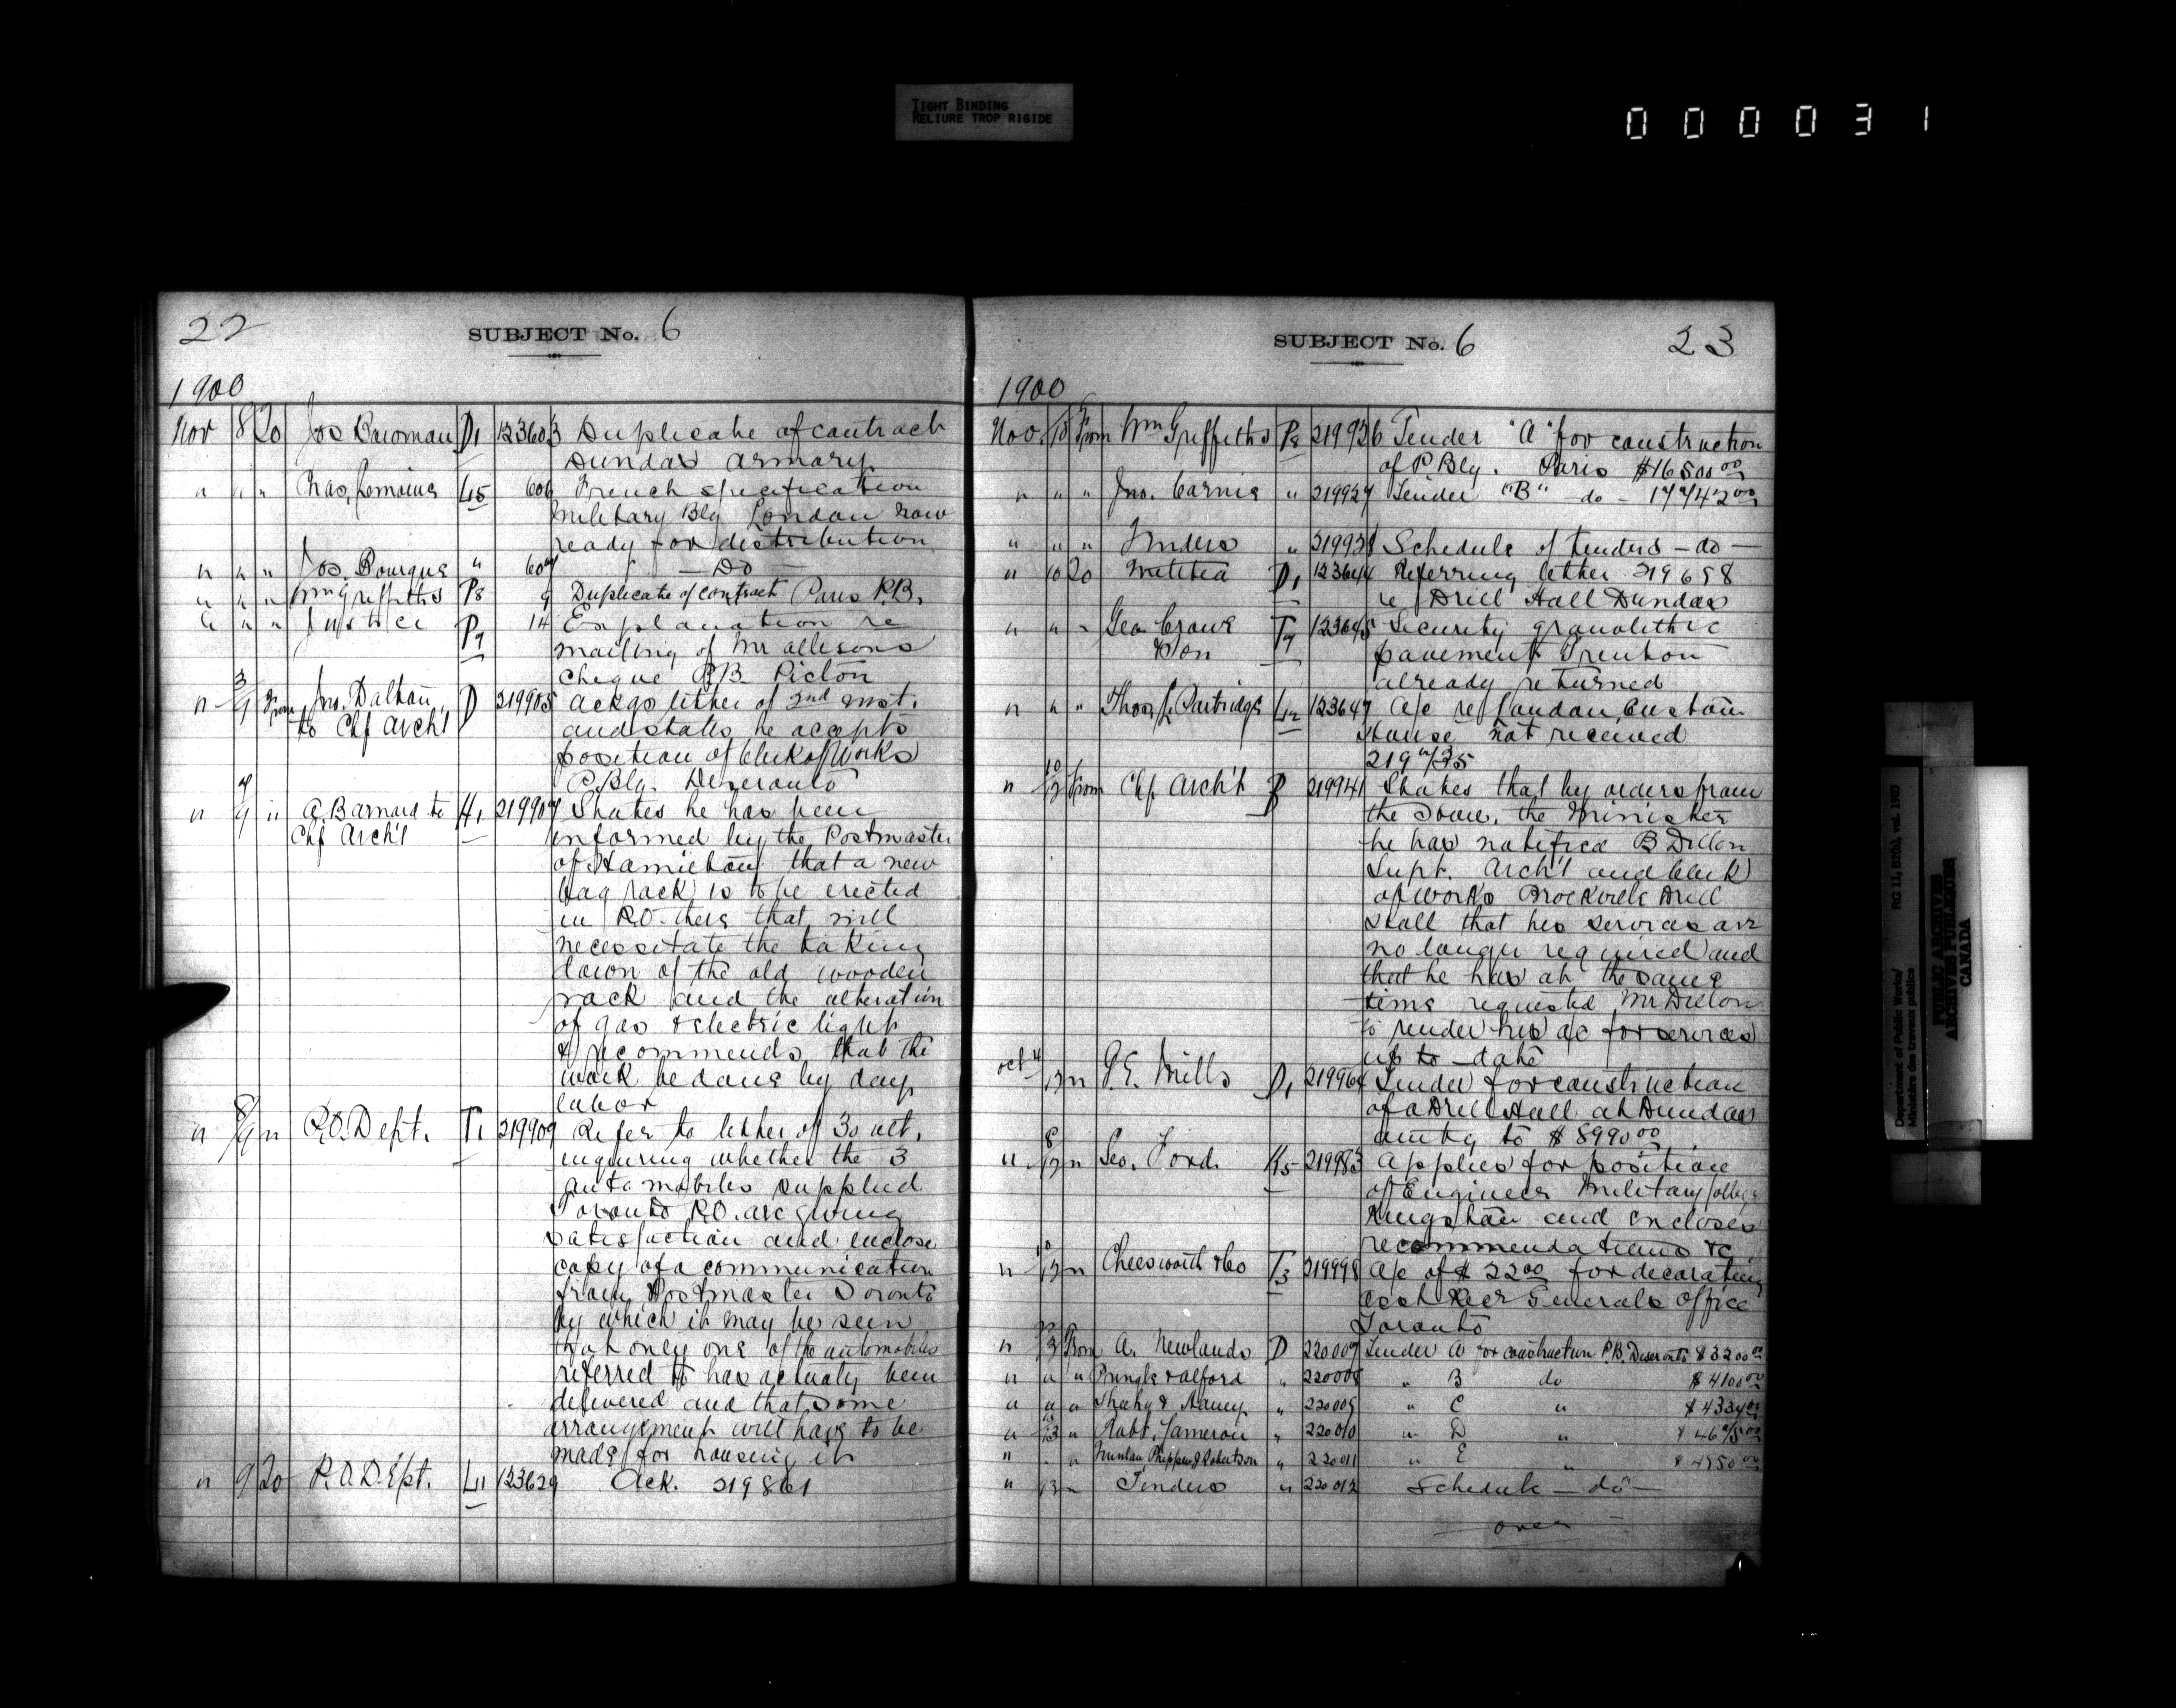 TIGHT BINDING
RELIURE TROP RIGIDE
000031
22
SUBJECT No. 6
1900
Nov 8 To Jos Bowman D1 123603 Duplicate of contract
Dundas armory
" " " Chas. Lemoine L5 606 French specification
Military Blg London now
ready for distribution
" " " Jos. Bourque " 607 — Do —
" " " Wm Griffiths P8 9 Duplicate of contract Paris P.B.
" " " Justice P7 14 Explanation re
mailing of Mr allisons
cheque P.B. Picton
" 3/9 From Jno. Dalton D 219905 Ackgs letter of 2nd inst.
to Chf Arch't and states he accepts
position of Clerk of Works
P. Blg. Deseronto
" 9 " A. Barnard to H1 219907 States he has been
Chf Arch't informed by the Postmaster
of Hamilton that a new
bag rack is to be erected
in P.O. there that will
necessitate the taking
down of the old wooden
rack and the alteration
of gas & electric light
& recommends that the
work be done by day
labor
" 8/9 " P.O. Dept. T1 219909 Refer to letter of 30 ult.
inquiring whether the 3
automobiles supplied
Toronto P.O. are giving
satisfaction and enclose
copy of a communication
from Postmaster Toronto
by which it may be seen
that only one of the automobiles
referred to has actually been
delivered and that some
arrangement will have to be
made for housing it
" 9 To P.O. Dept. L11 123629 Ack. 219861
SUBJECT No. 6
23
1900
Nov. 10 From Wm Griffiths P8 219936 Tender "A" for construction
of P Blg. Paris $16500 00
" " " Jno. Carnie " 219937 Tender "B" — do — 17742 00
" " " Tenders " 219938 Schedule of tenders — do —
" 10 To Militia D1 123644 Referring letter 219658
re Drill Hall Dundas
" " " Geo Crowe T7 123645 Security granolithic
& Son pavement Trenton
already returned
" " " Thos. J. Partridge L12 123647 a/c re London Custom
House not received
" 10/12 From Chf Arch't B 219941 States that by orders from
the Honr. the Minister
he has notified B Dillon
Supt. Arch't and Clerk
of Works Brockville Drill
Hall that his services are
no longer required and
that he has at the same
time requested Mr Dillon
to render his a/c for services
up to date
Oct 4/12 " P.E. Mills D1 219964 Tender for construction
of a Drill Hall at Dundas
amtg to $8990 00
" 8/12 " Geo. Ford. K5 219983 Applies for position
of Engineer Military College
Kingston and encloses
recommendations &c.
" 10/12 " Cheesworth & Co T3 219998 a/c of $22 00 for decorating
asst Recr Generals Office
Toronto
" 13 From A. Newlands D 220007 Tender A for construction P.B. Deseronto $3200 00
" " " Pringle & alford " 220008 " B do $4100 00
" " " " 220009 " C " $4334 00
" 13 " Robt. Cameron " 220010 " D "
" " " " 220011 " E " $4950 00
" 13 " Tenders " 220012 Schedule — do —
— over —
Department of Public Works/
Ministère des travaux publics
RG 11, B2(b), vol. 1903
PUBLIC ARCHIVES
ARCHIVES PUBLIQUES
CANADA